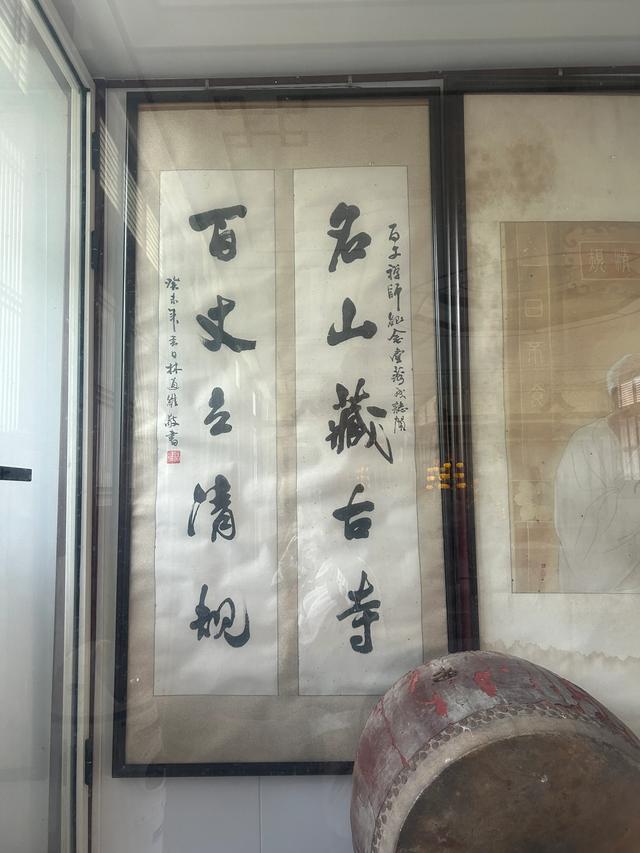 百丈禅师纪念堂落成志庆
名山藏古寺
百丈立清规
癸未年春日林道雄敬书